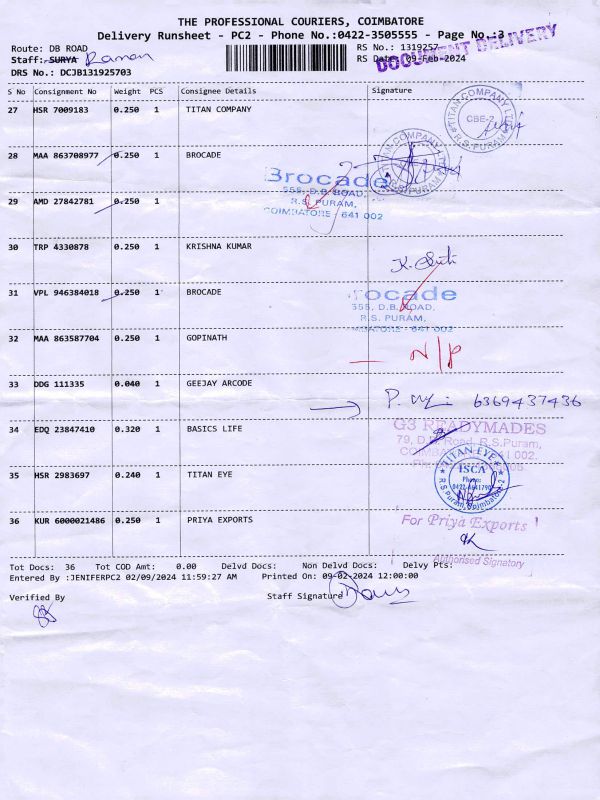 THE PROFESSIONAL COURIERS, COIMBATORE
Delivery Runsheet - PC2 - Phone No.:0422-3505555 - Page No.:3
Route: DB ROAD
RS No.: 1319257
DOCUMENT DELIVERY
Staff: SURYA Raman
RS Date: 09-Feb-2024
DRS No.: DCJB131925703
S No Consignment No Weight PCS Consignee Details Signature
27 HSR 7009183 0.250 1 TITAN COMPANY
TITAN COMPANY
CBE-2
R.S.PURAM
28 MAA 863708977 0.250 1 BROCADE
TITAN COMPANY
R.S.PURAM
Brocade
555, D.B.ROAD,
R.S. PURAM,
COIMBATORE - 641 002
29 AMD 27842781 0.250 1
30 TRP 4330878 0.250 1 KRISHNA KUMAR
31 VPL 946384018 0.250 1 BROCADE
rocade
355, D.B.ROAD,
R.S. PURAM,
MBATORE - 641 002
32 MAA 863587704 0.250 1 GOPINATH
N/P
33 DDG 111335 0.040 1 GEEJAY ARCODE
6369437436
34 EDQ 23847410 0.320 1 BASICS LIFE
G3 READYMADES
79, D.B. Road, R.S.Puram,
35 HSR 2983697 0.240 1 TITAN EYE
TITAN EYE
ISCA
Phone:
R.S.Puram, Coimbatore-2
36 KUR 6000021486 0.250 1 PRIYA EXPORTS
For Priya Exports
Authorised Signatory
Tot Docs: 36 Tot COD Amt: 0.00 Delvd Docs: Non Delvd Docs: Delvy Pts:
Entered By :JENIFERPC2 02/09/2024 11:59:27 AM Printed On: 09-02-2024 12:00:00
Verified By
Staff Signature